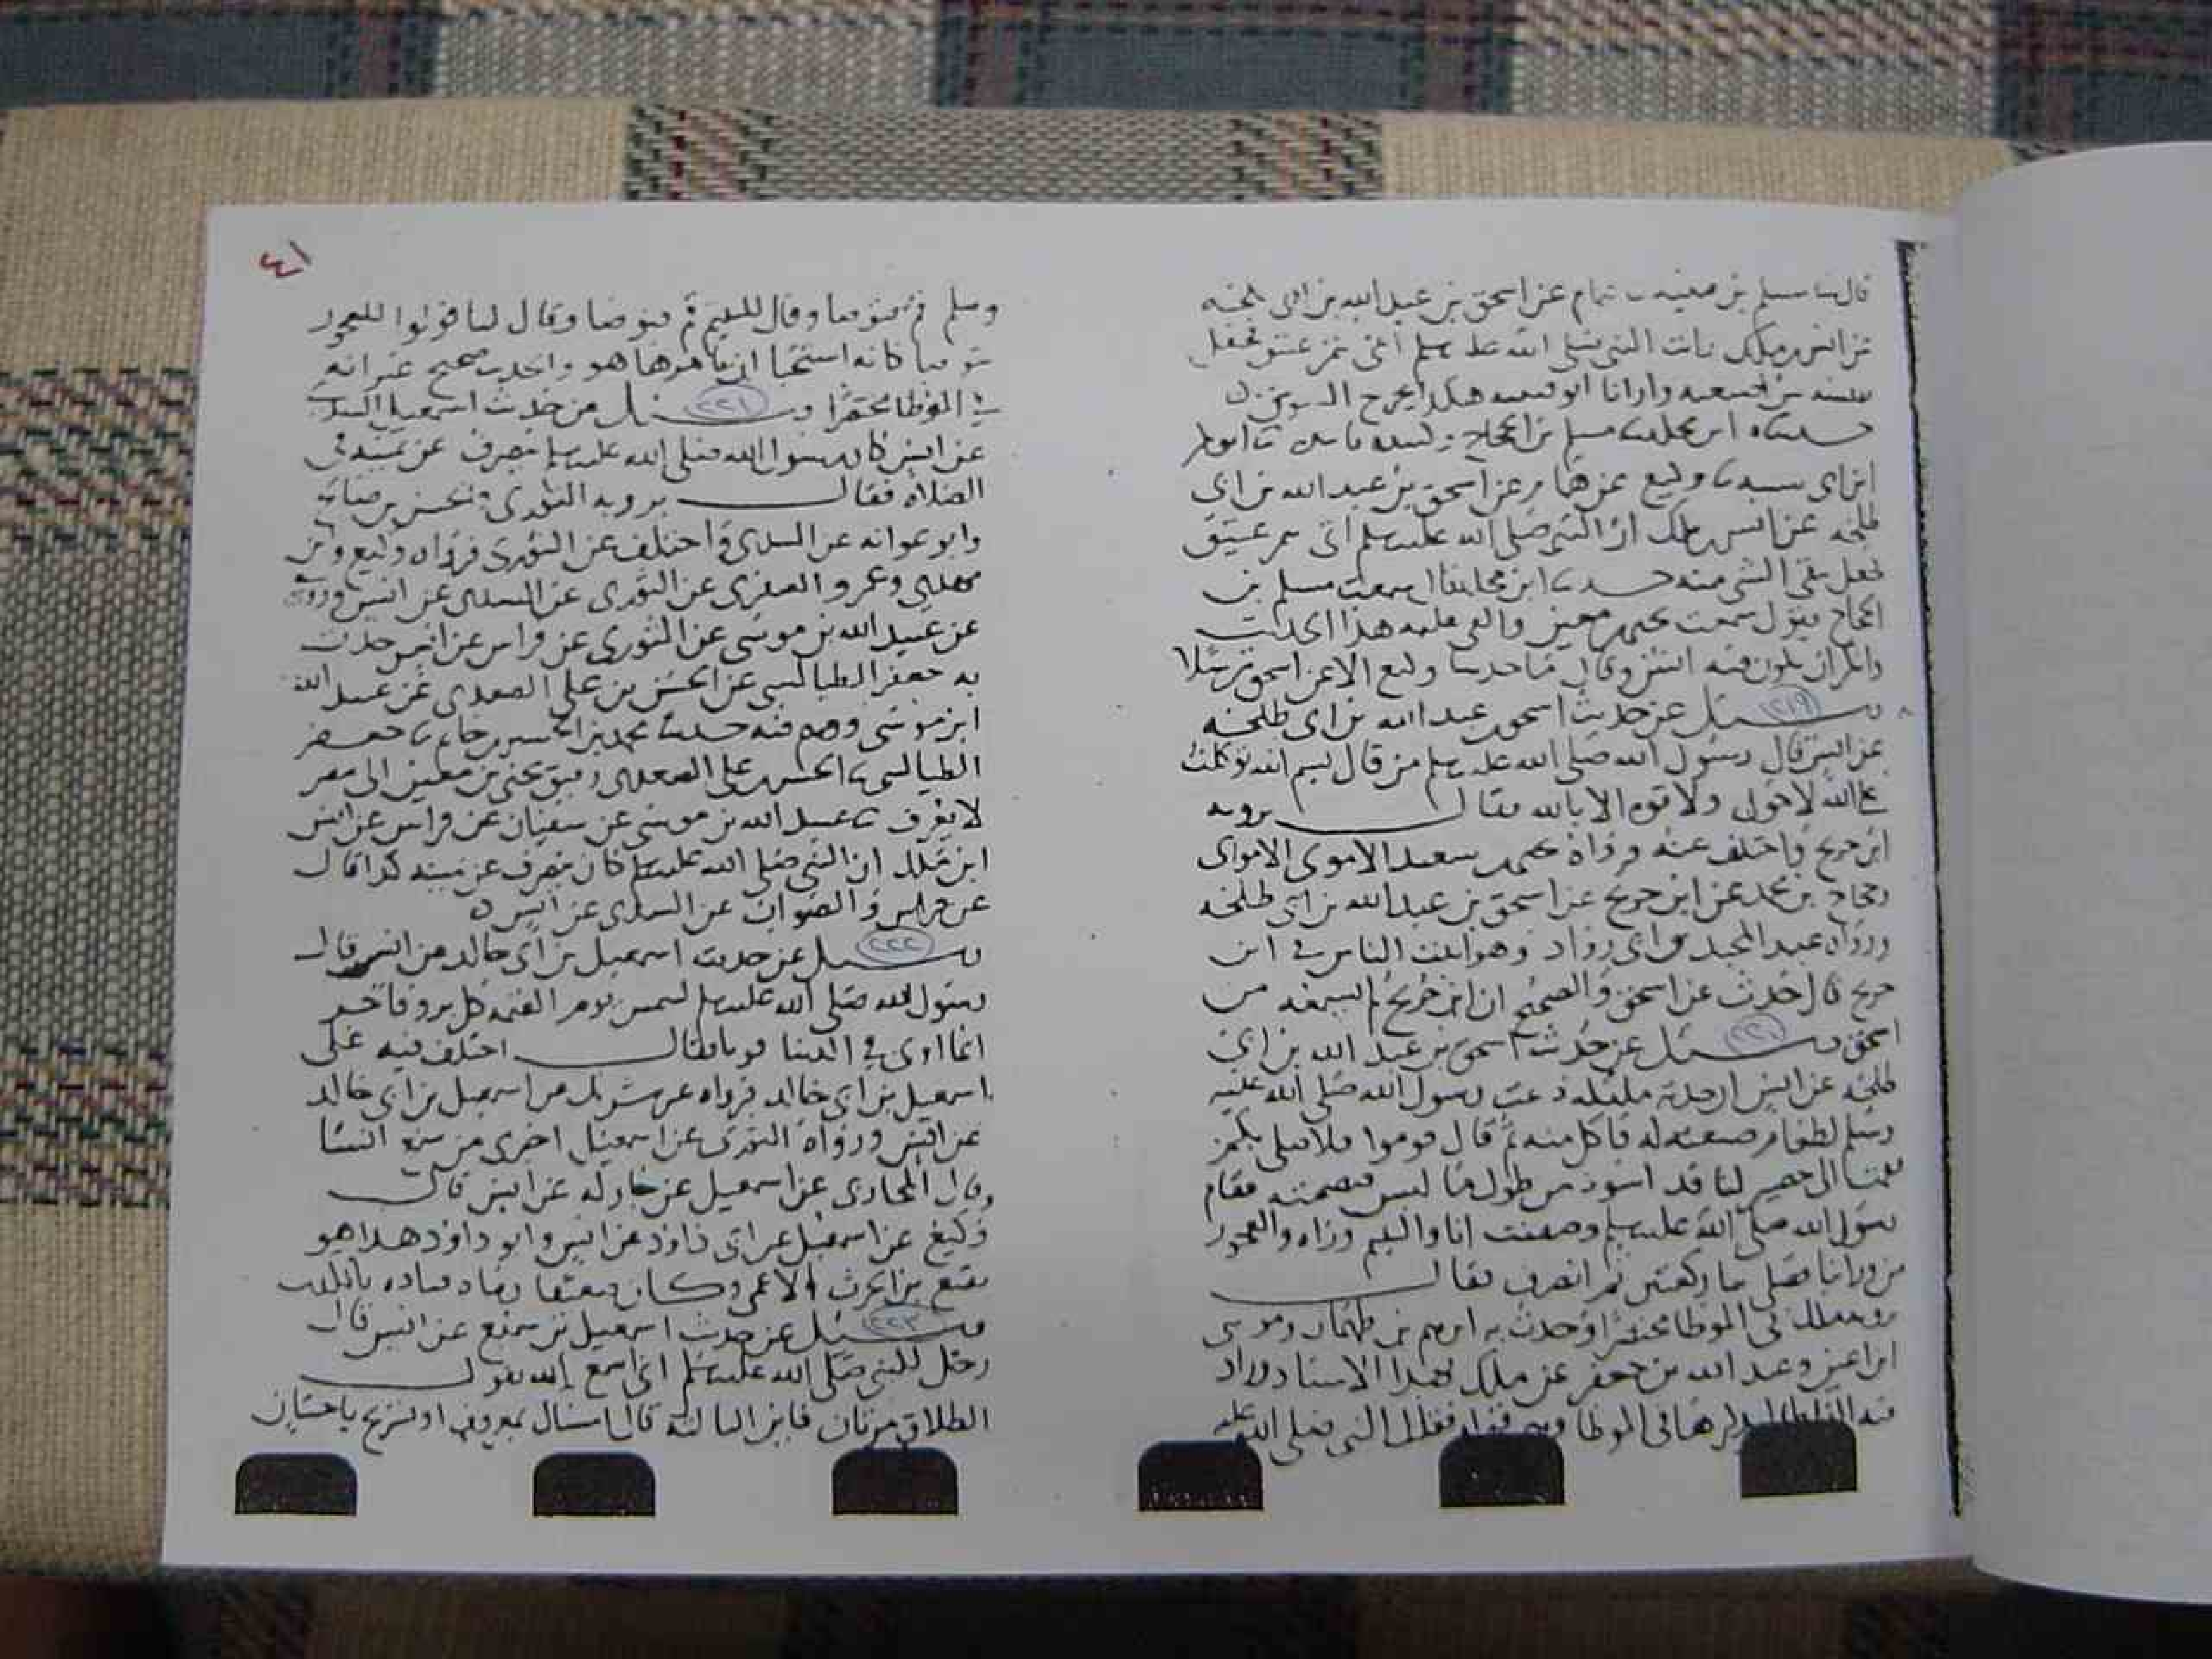 قال سلم بن قتيبة همام عن اسحق بن عبد الله بن ابى طلحه
عن انس بن ملك رايت النبى صلى الله عليه وسلم اتى بتمر عتيق فجعل
يفتشه وارانا ابو قتيبه هكذا يخرج السوس
ابن مخلد مسلم بن الحجاج
وكيع عن همام عن اسحق بن عبد الله بن ابى
طلحه عن انس بن ملك ان النبى صلى الله عليه وسلم اتى بتمر عتيق
فجعل يلقى الشى منه حدثنا ابن مخلد قال سمعت مسلم بن
الحجاج يقول سمعت يحيى بن معين والقى عليه هذا الحديث
وانكر ان يكون فيه انس وقال ما حدثنا وكيع الا عن اسحق مرسلا
٢١٩
وسئل عن حديث اسحق بن عبد الله بن ابى طلحه
عن انس قال رسول الله صلى الله عليه وسلم من قال بسم الله توكلت
على الله لا حول ولا قوه الا بالله فقال يرويه
ابن جريج واختلف عنه فرواه يحيى بن سعيد الاموى
وحجاج بن محمد عن ابن جريج عن اسحق بن عبد الله بن ابى طلحه
ورواه عبد المجيد بن ابى رواد وهو اثبت الناس فى ابن
جريج قال حدثت عن اسحق والصحيح ان ابن جريج لم يسمعه من
٢٢٠
اسحق وسئل عن حديث اسحق بن عبد الله بن ابى
طلحه عن انس ان جدته مليكه دعت رسول الله صلى الله عليه
وسلم لطعام صنعته له فاكل منه ثم قال قوموا فلاصلى بكم
فقمت الى حصير لنا قد اسود من طول ما لبس فنضحته فقام
رسول الله صلى الله عليه وسلم وصففت انا واليتيم وراه والعجوز
من وراينا فصلى بنا ركعتين ثم انصرف فقال
رواه ملك فى الموطا مختصرا وحدث به ابرهيم بن طهمان وموسى
ابن اعين وعبد الله بن جعفر عن ملك بهذا الاسناد وزاد
فيه لم يذكرها فى الموطا وهى قوله فقال النبى صلى الله عليه
٤١
وسلم قم فتوضا وقال لليتيم قم فتوضا وقال لنا قولوا للعجوز
توضا كانه استحيا ان يامرها هو والحديث صحيح غير انه
٢٢١
فى الموطا مختصرا وسئل عن حديث اسمعيل السدى
عن انس كان رسول الله صلى الله عليه وسلم ينصرف عن يمينه فى
الصلاه فقال يرويه الثورى والحسن بن صالح
وابو عوانه عن السدى واختلف عن الثورى فرواه وكيع وابن
مهدى وعمرو العنقزى عن الثورى عن السدى عن انس وروى
عن عبيد الله بن موسى عن الثورى عن فراس عن انس حدث
به جعفر الطيالسى عن الحسن بن على الصعدى عن عبيد الله
ابن موسى ووهم فيه حدثنا محمد بن الحسين بن حاتم جعفر
الطيالسى الحسن بن على الصعدى رفيق يحيى بن معين الى مصر
لا يعرف عبيد الله بن موسى عن سفيان عن فراس عن انس
ابن ملك ان النبى صلى الله عليه وسلم كان ينصرف عن يمينه كذا قال
عن فراس والصواب عن السدى عن انس
٢٢٢
وسئل عن حديث اسمعيل بن ابى خالد عن انس قال
رسول الله صلى الله عليه وسلم ليس يوم القيمه كل بر وفاجر
انما اوتى فى الدنيا قوتا فقال اختلف فيه على
اسمعيل بن ابى خالد فرواه عن اسمعيل بن ابى خالد
عن انس ورواه الثورى عن اسمعيل اخبرى من سمع انسا
وقال المحاربى عن اسمعيل عن عن انس قال
وكيع عن اسمعيل عن ابى داود عن انس وابو داود هذا هو
نفيع بن الحرث الاعمى وكان ضعيفا رماه قتاده بالكذب
٢٢٣
وسئل عن حديث اسمعيل بن سميع عن انس قال
رجل للنبى صلى الله عليه وسلم انى اسمع الله يقول
الطلاق مرتان فاين الثالثه قال امساك بمعروف او تسريح باحسان